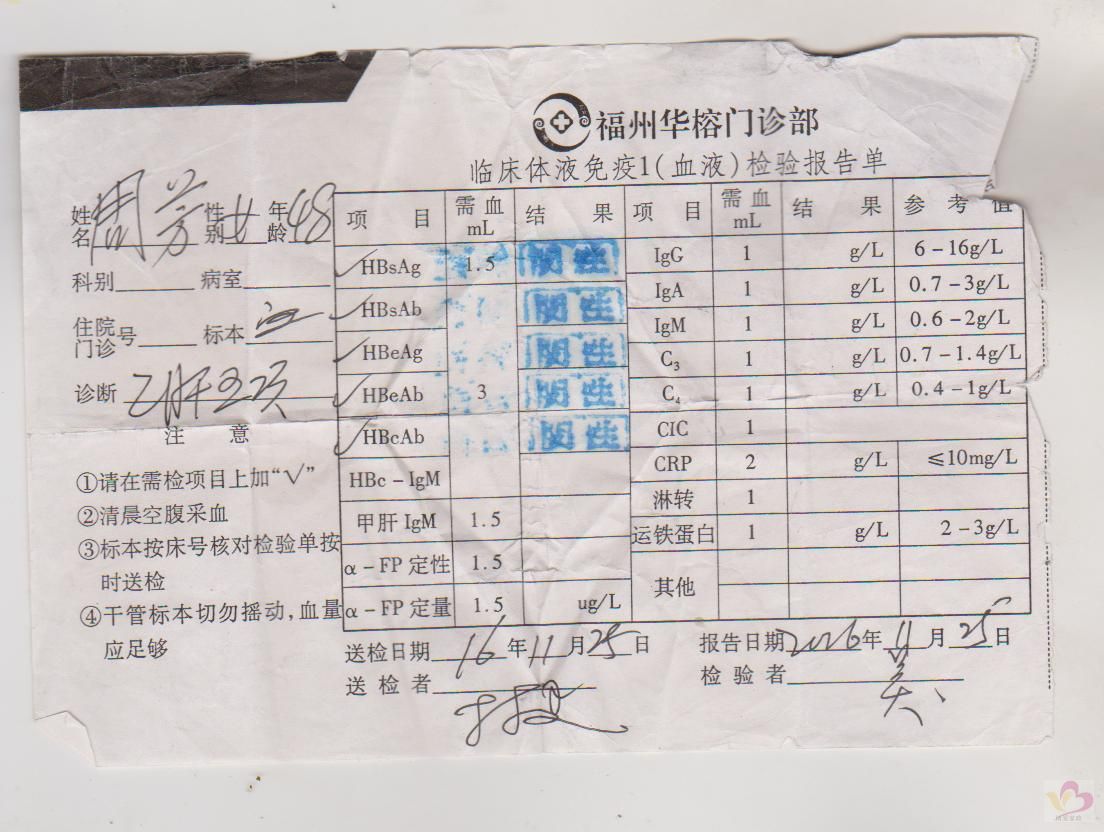 福州华榕门诊部
临床体液免疫1(血液)检验报告单
姓名 周芳 性别 女 年龄 48
科别 病室
住院门诊号 标本 血
诊断 乙肝五项
注 意
①请在需检项目上加“√”
②清晨空腹采血
③标本按床号核对检验单按
时送检
④干管标本切勿摇动,血量
应足够
项 目 需血mL 结 果 项 目 需血mL 结 果 参考值
√ HBsAg 1.5 阴性 IgG 1 g/L 6-16g/L
√ HBsAb 阴性 IgA 1 g/L 0.7-3g/L
√ HBeAg 阴性 IgM 1 g/L 0.6-2g/L
√ HBeAb 3 阴性 C₃ 1 g/L 0.7-1.4g/L
√ HBcAb 阴性 C₄ 1 g/L 0.4-1g/L
CIC 1
HBc-IgM CRP 2 g/L ≤10mg/L
甲肝IgM 1.5 淋转 1
α-FP定性 1.5 运铁蛋白 1 g/L 2-3g/L
α-FP定量 1.5 ug/L 其他
送检日期 16年11月25日 报告日期 2016年11月25日
送检者 检验者